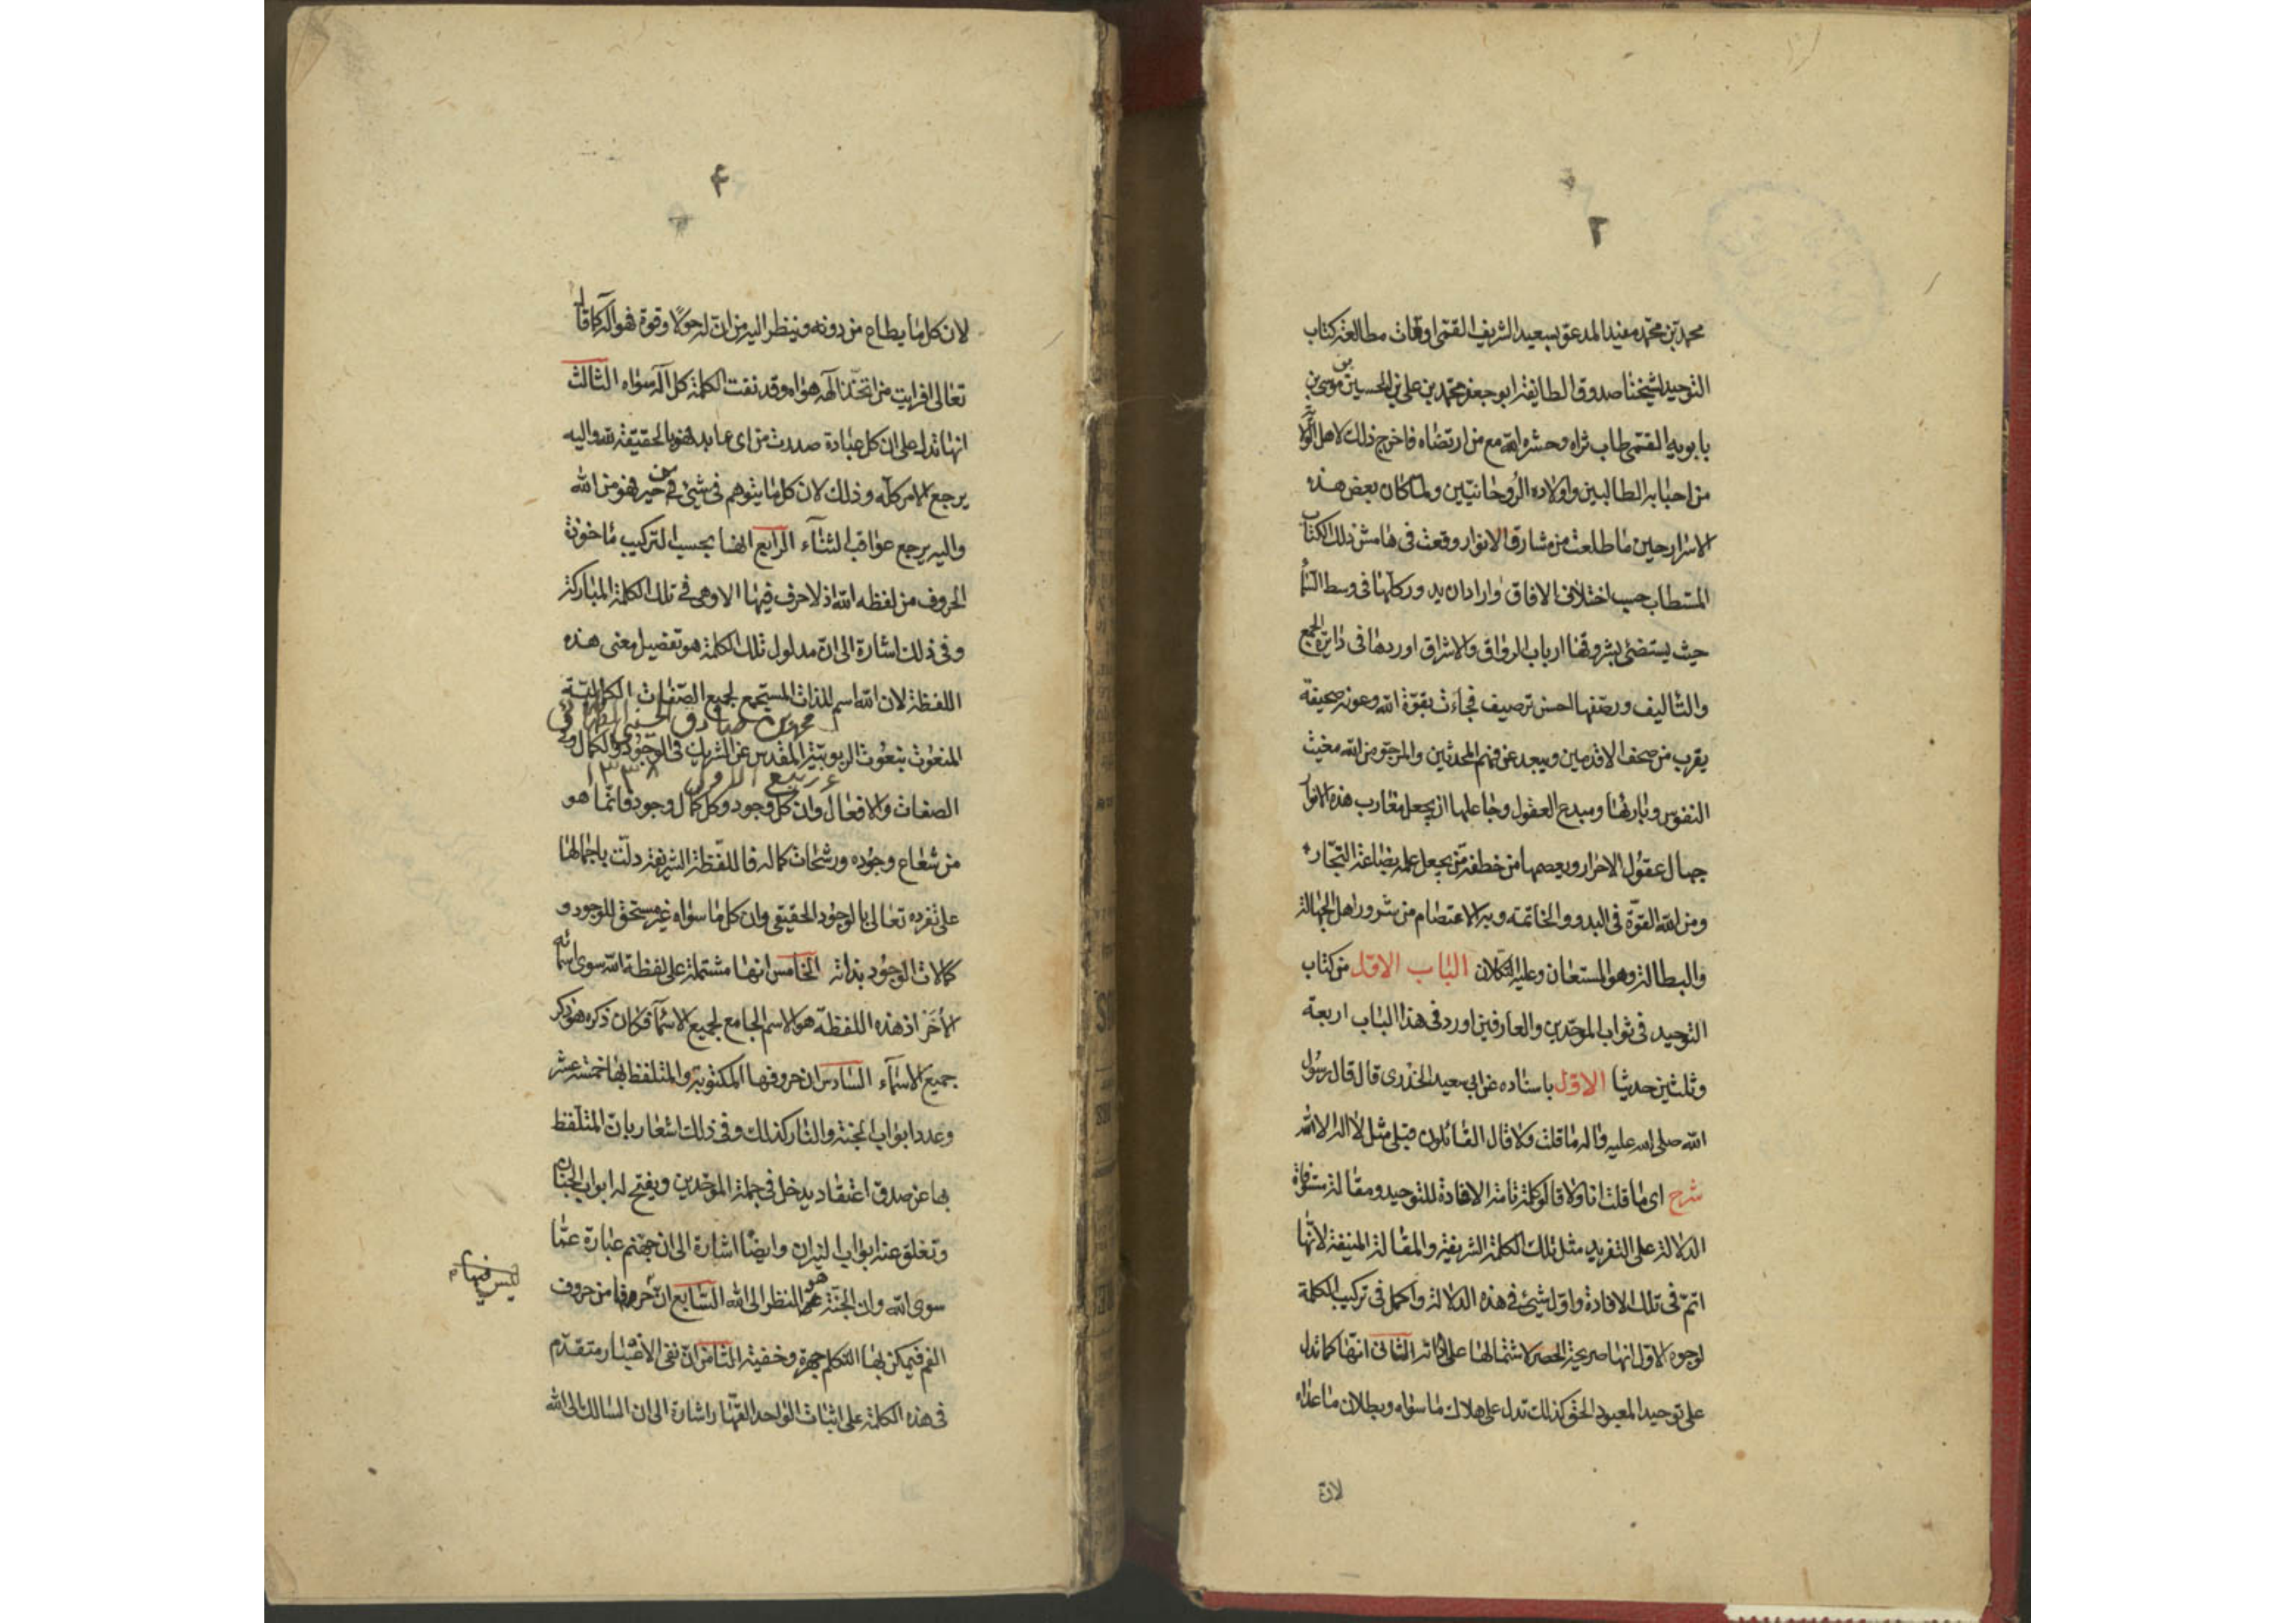 ٢
محمد بن محمد مفيد المدعو بسعيد الشريف القمى اوقات مطالعة كتاب
التوحيد لشيخنا صدوق الطايفة ابو جعفر محمد بن على بن الحسين بن موسى بن
بابويه القمى طاب ثراه وحشره الله مع من ارتضاه فاخرج ذلك لاهل الولا
من احبابه الطالبين واولاده الروحانيين ولما كان بعض هذه
الاسرار حين ما طلعت من مشارق الانوار وقعت فى هامش ذلك الكتاب
المستطاب حسب اختلاف الافاق واراد ان يدور كلها فى وسط السما
حيث يستضئ بشروقها ارباب الرواق والاشراق اوردها فى دايرة الجمع
والتاليف ورصفها احسن ترصيف فجاءت بقوة الله وعونه صحيفة
يقرب من صحف الاقدمين ويبعد عن فهم المحدثين والمرجو من الله مغيث
النفوس وبارئها ومبدع العقول وجاعلها ان يجعل مغارب هذه الانوار
جبال عقول الاحرار ويعصمها من خطفة من يجعل علمه بضاعة التجار
ومن الله القوة فى البدو والخاتمة وبه الاعتصام من شرور اهل الجهالة
والبطالة وهو المستعان وعليه التكلان الباب الاول من كتاب
التوحيد فى ثواب الموحدين والعارفين اورد فى هذا الباب اربعة
وثلثين حديثا الاول باسناده عن ابى سعيد الخدرى قال قال رسول
الله صلى الله عليه واله ما قلت ولا قال القائلون قبلى مثل لا اله الا الله
شرح اى ما قلت انا ولا قالوا كلمة تامة الافادة للتوحيد ومقالة مستوفاة
الدلالة على التفريد مثل تلك الكلمة الشريفة والمقالة المنيفة لانها
اتم فى تلك الافادة واول شئ فى هذه الدلالة واكمل فى تركيب الكلمة
لوجوه الاول انها صريحة الحصر لاشتمالها على اداته الثانى انها كما تدل
على توحيد المعبود الحق كذلك تدل على هلاك ما سواه وبطلان ما عداه
لان
۴
لان كل ما يطاع من دونه وينظر اليه من ان له حولا وقوة فهو اله كما قال
تعالى افرايت من اتخذ الهه هواه وقد نفت الكلمة كل اله سواه الثالث
انها تدل على ان كل عبادة صدرت من اى عابد فهو بالحقيقة لله واليه
يرجع الامر كله وذلك لان كل ما يتوهم فى شئ من خير فهو من الله
واليه يرجع عواقب الثناء الرابع انها بحسب التركيب ماخوذة
الحروف من لفظه الله اذ لا حرف فيها الا وهى فى تلك الكلمة المباركة
وفى ذلك اشارة الى ان مدلول تلك الكلمة هو تفصيل معنى هذه
اللفظة لان الله اسم للذات المستجمع لجميع الصفات الكمالية
محمد بن صادق الحسنى
المنعوت بنعوت الربوبية المقدس عن الشريك فى الوجود والكمال وفى
ربيع الاول ١٣٣٨
الصفات والافعال وان كل وجود وكل كمال وجود فانما هو
من شعاع وجوده ورشحات كماله فاللفظة الشريفة دلت باجمالها
على تفرده تعالى بالوجود الحقيقى وان كل ما سواه غير مستحق للوجود و
كمالات الوجود بذاته الخامس انها مشتملة على لفظة الله سوى اسمائه
الاخر اذ هذه اللفظة هو الاسم الجامع لجميع الاسماء فكان ذكره هو ذكر
جميع الاسماء السادس ان حروفها المكتوبة والمتلفظ بها خمسة عشر
وعدد ابواب الجنة والنار كذلك وفى ذلك اشعار بان المتلفظ
بها عن صدق اعتقاد يدخل فى جملة الموحدين ويفتح له ابواب الجنان
وتغلق عنه ابواب النيران وايضا اشارة الى ان جهنم عبارة عما
سوى الله وان الجنة هو النظر الى الله السابع ان حروفها من حروف
ليس فيها
الفم فيمكن بها التكلم جهرة وخفية الثامن ان نفى الاغيار متقدم
فى هذه الكلمة على اثبات الواحد القهار اشارة الى ان السالك الى الله